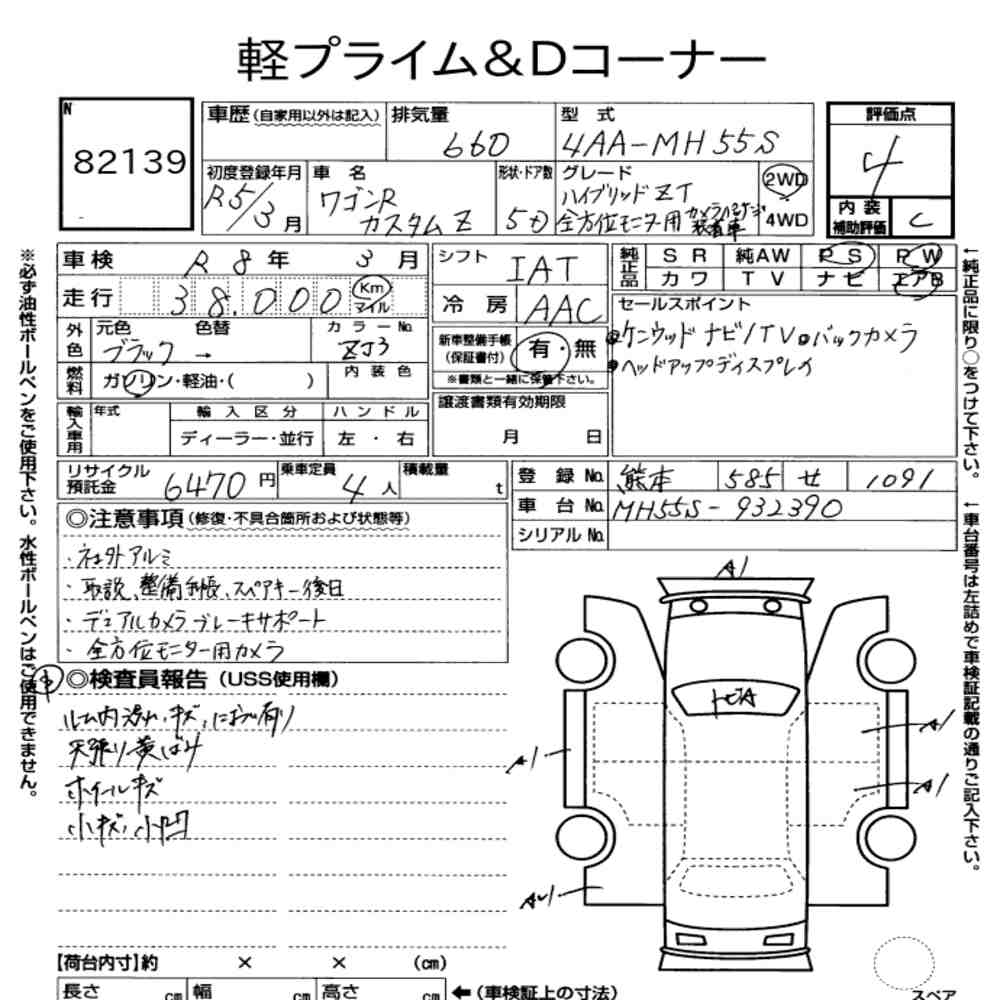 軽プライム&Dコーナー
N
82139
車歴(自家用以外は記入) 排気量 660 型式 4AA-MH55S
初度登録年月 R5/3月 車名 ワゴンR カスタムZ 形状・ドア数 5D グレード ハイブリッドZT 全方位モニター用カメラパッケージ装着車 2WD 4WD
評価点 4
内装補助評価 C
車検 R8年 3月
走行 38,000 Km マイル
外色 元色 ブラック 色替 → カラーNo. ZJ3
燃料 ガソリン・軽油・( ) 内装色
輸入車用 年式 輸入区分 ディーラー・並行 ハンドル 左・右
シフト IAT
冷房 AAC
新車整備手帳(保証書付) 有・無
※書類と一緒に保管下さい。
譲渡書類有効期限 月 日
純正品 SR 純AW PS PW
カワ TV ナビ エアB
セールスポイント
ケンウッドナビ/TV バックカメラ
ヘッドアップディスプレイ
リサイクル預託金 6470円 乗車定員 4人 積載量 t
登録No. 熊本 585 せ 1091
車台No. MH55S-932390
シリアルNo.
◎注意事項(修復・不具合箇所および状態等)
・社外アルミ
・取説、整備手帳、スペアキー後日
・デュアルカメラブレーキサポート
・全方位モニター用カメラ
◎検査員報告(USS使用欄)
ルーム内汚れ、キズ、におい有り
天張り黄ばみ
ホイールキズ
小キズ、小凹
A1
トビA
A1
A1
A1
【荷台内寸】約 × × (cm)
長さ cm 幅 cm 高さ cm ←(車検証上の寸法)
スペア
※必ず油性ボールペンをご使用下さい。水性ボールペンはご使用できません。
←純正品に限り○をつけて下さい。
←車台番号は左詰めで車検証記載の通りご記入下さい。